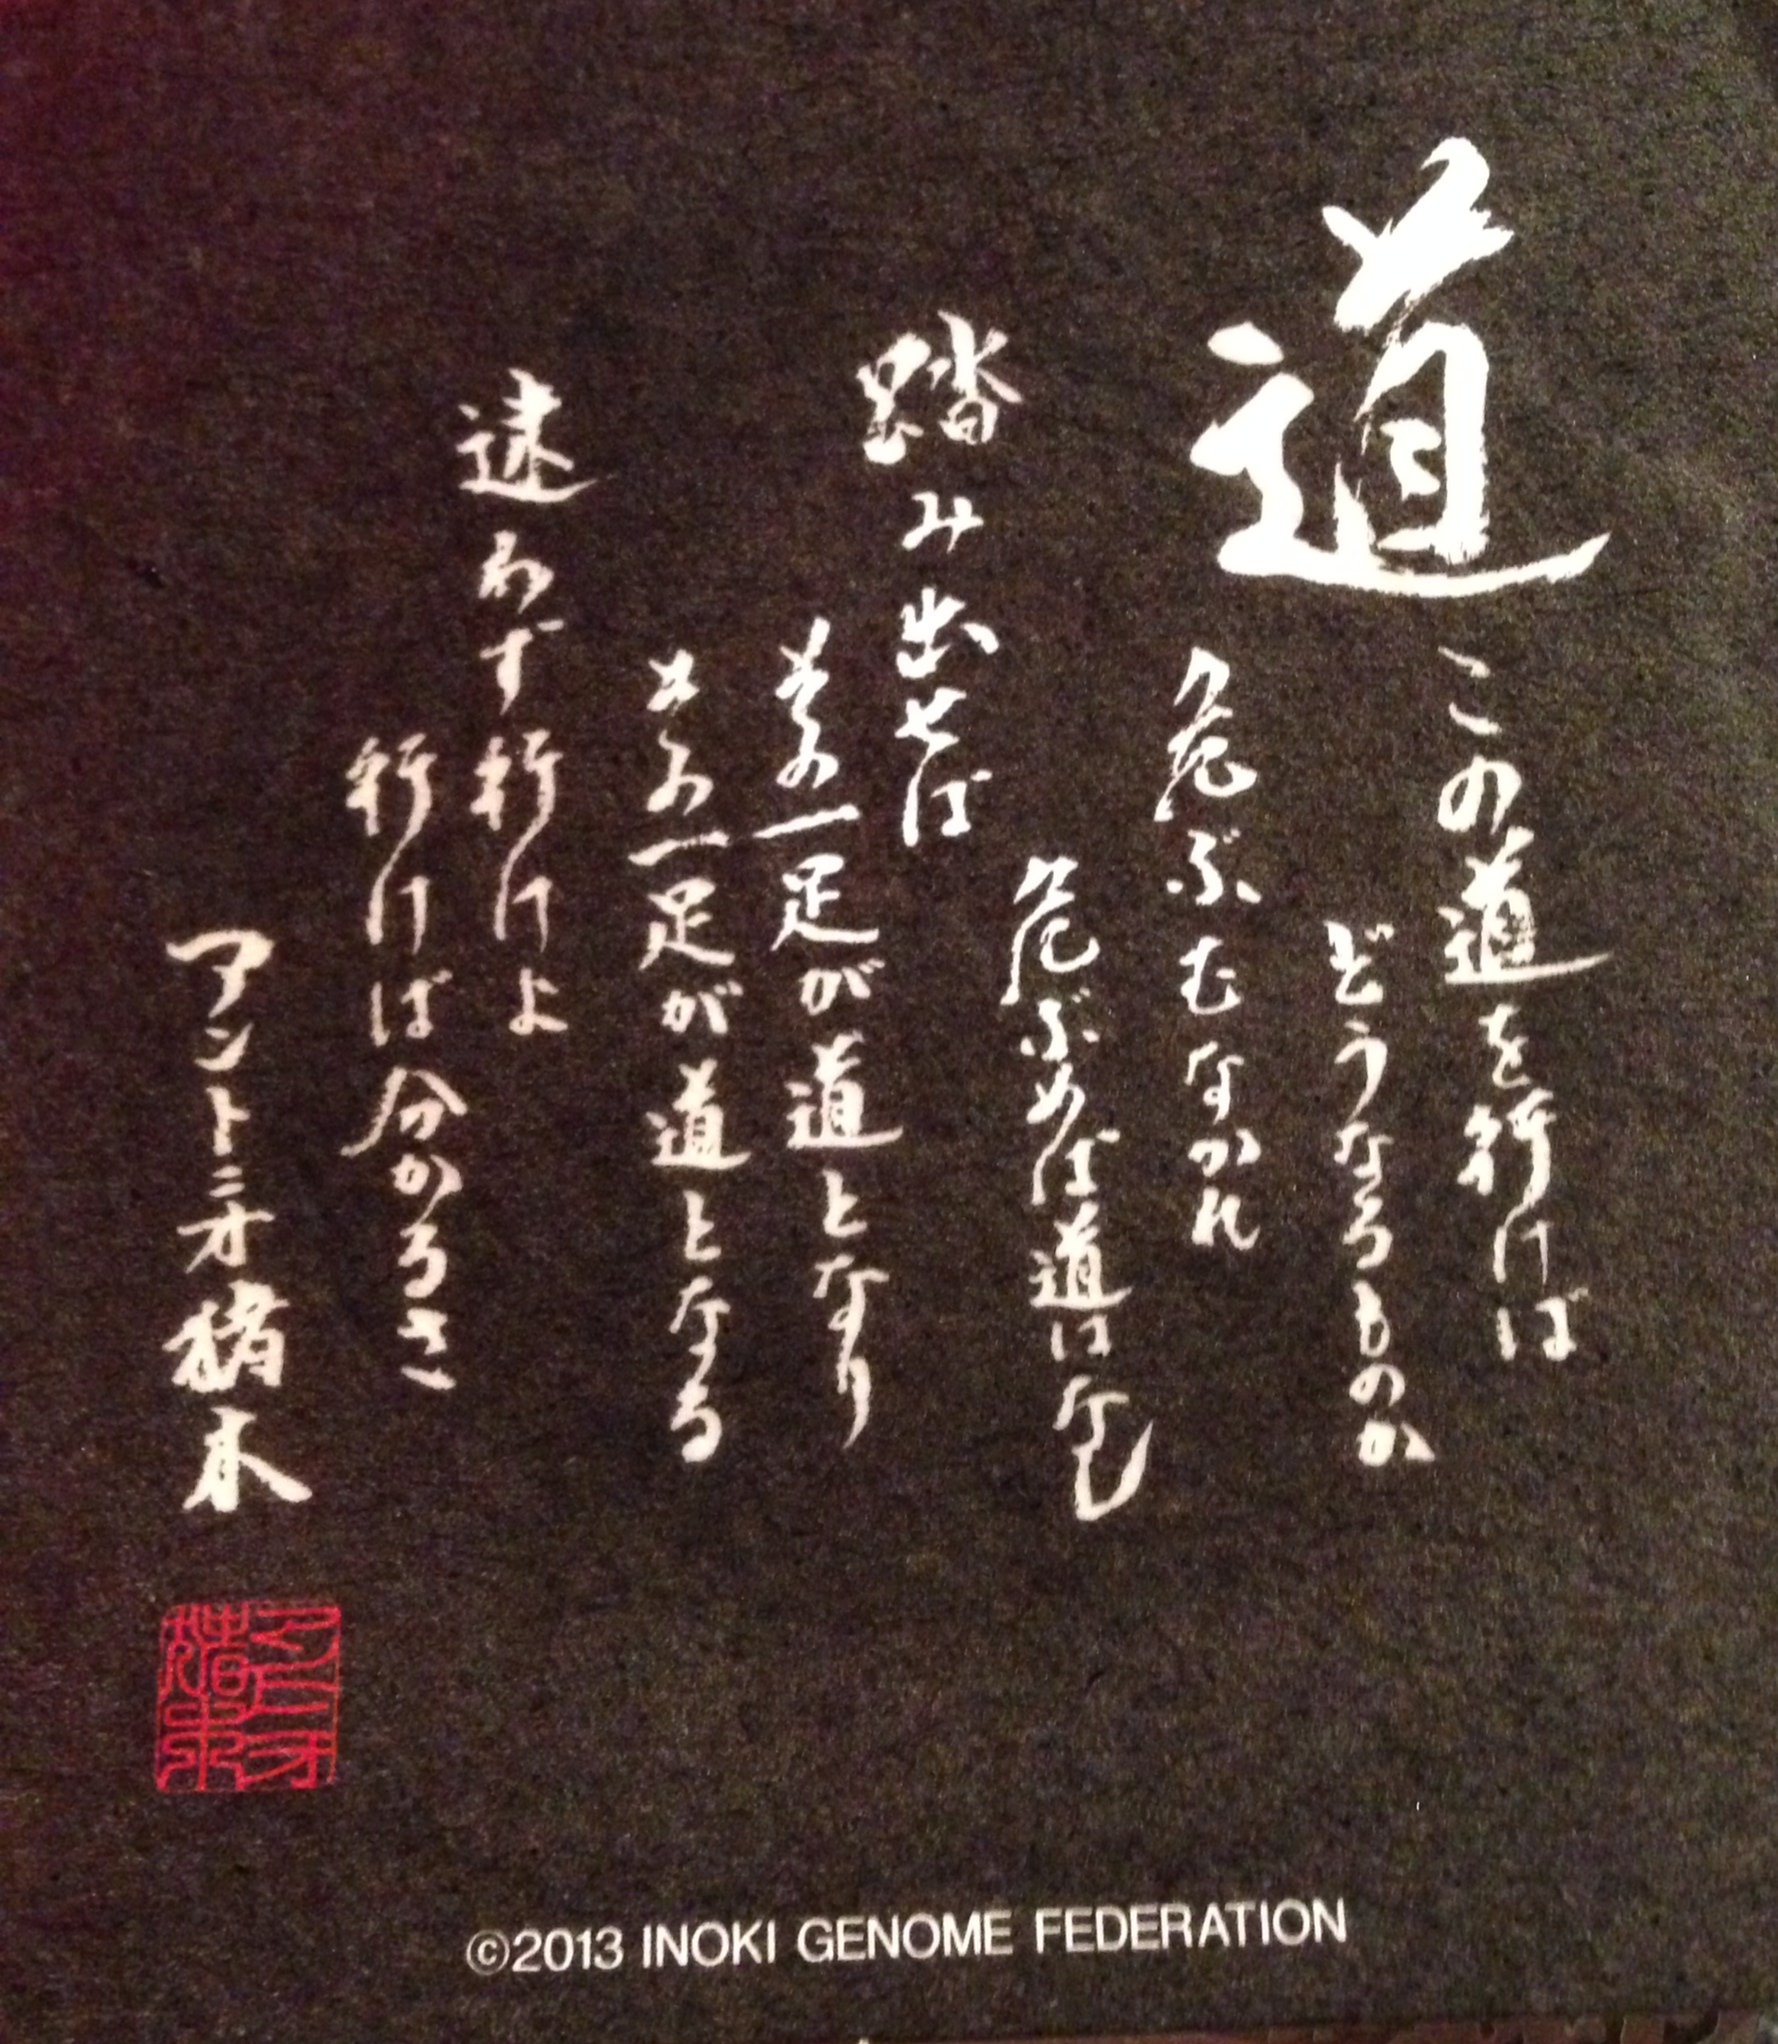 道
この道を行けば
どうなるものか
危ぶむなかれ
危ぶめば道はなし
踏み出せば
その一足が道となり
その一足が道となる
迷わず行けよ
行けば分かるさ
アントニオ猪木
©2013 INOKI GENOME FEDERATION